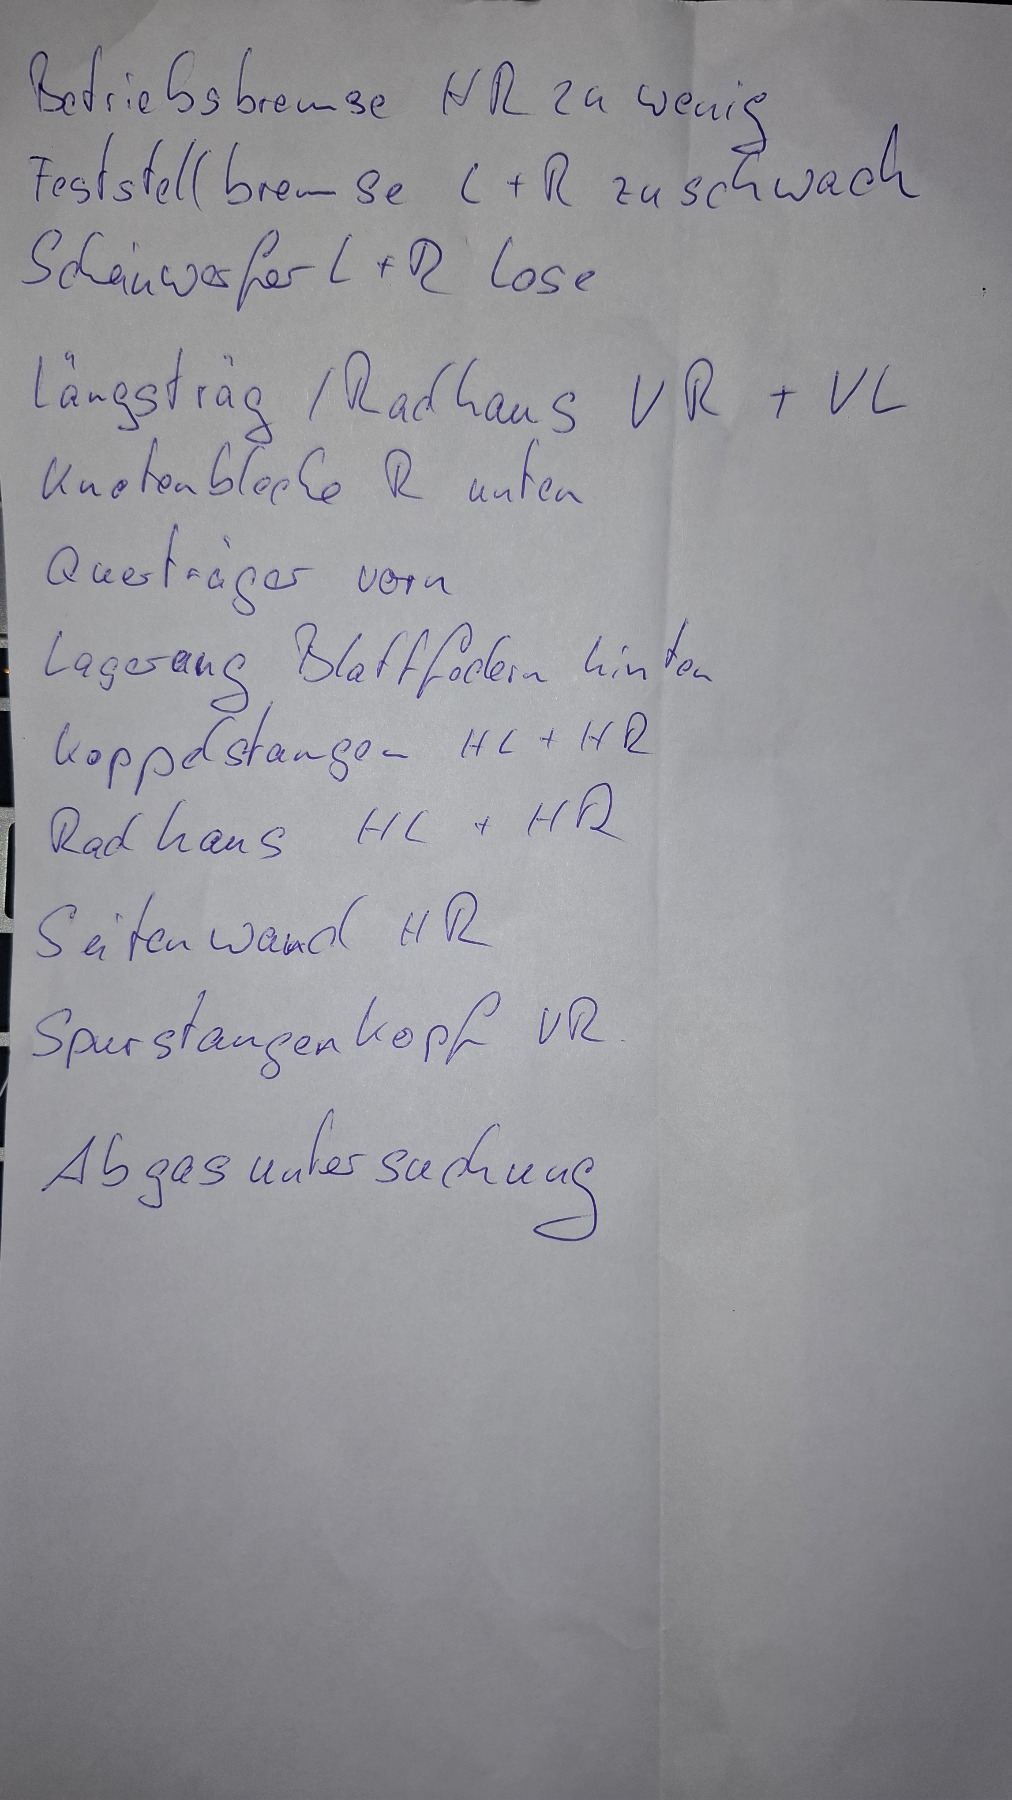 Betriebsbremse HR zu wenig
Feststellbremse L + R zu schwach
Scheinwerfer L + R Lose
Längsträg / Radhaus VR + VL
Knotenbleche R unten
Querträger vorn
Lagerung Blattfedern hinten
Koppelstangen HL + HR
Radhaus HL + HR
Seitenwand HR
Spurstangenkopf VR
Abgasuntersuchung